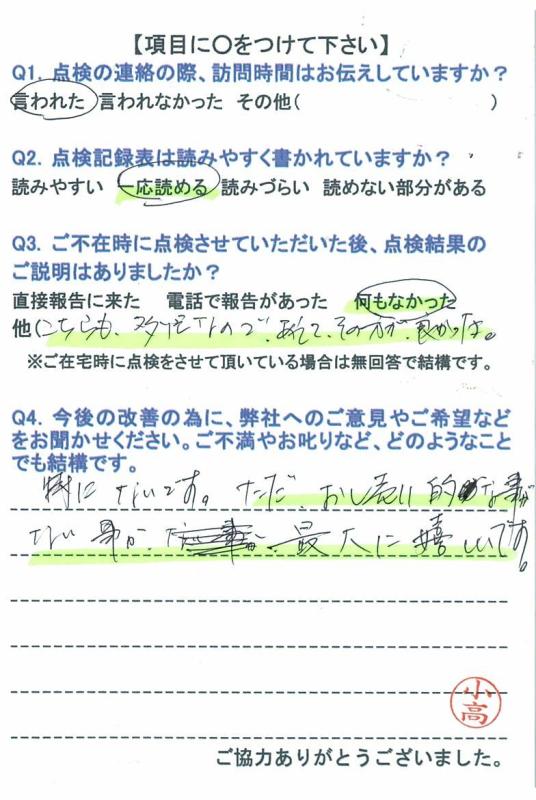 【項目に〇をつけて下さい】
Q1. 点検の連絡の際、訪問時間はお伝えしていますか？
言われた 言われなかった その他( )
Q2. 点検記録表は読みやすく書かれていますか？
読みやすい 一応読める 読みづらい 読めない部分がある
Q3. ご不在時に点検させていただいた後、点検結果の
ご説明はありましたか？
直接報告に来た 電話で報告があった 何もなかった
他(こちらも、 ので あえて、その方が良かったよ。
※ご在宅時に点検をさせて頂いている場合は無回答で結構です。
Q4. 今後の改善の為に、弊社へのご意見やご希望など
をお聞かせください。ご不満やお叱りなど、どのようなこと
でも結構です。
特にないです。ただ、おし売り的な事が
ない 最大に嬉しいです。
小高
ご協力ありがとうございました。